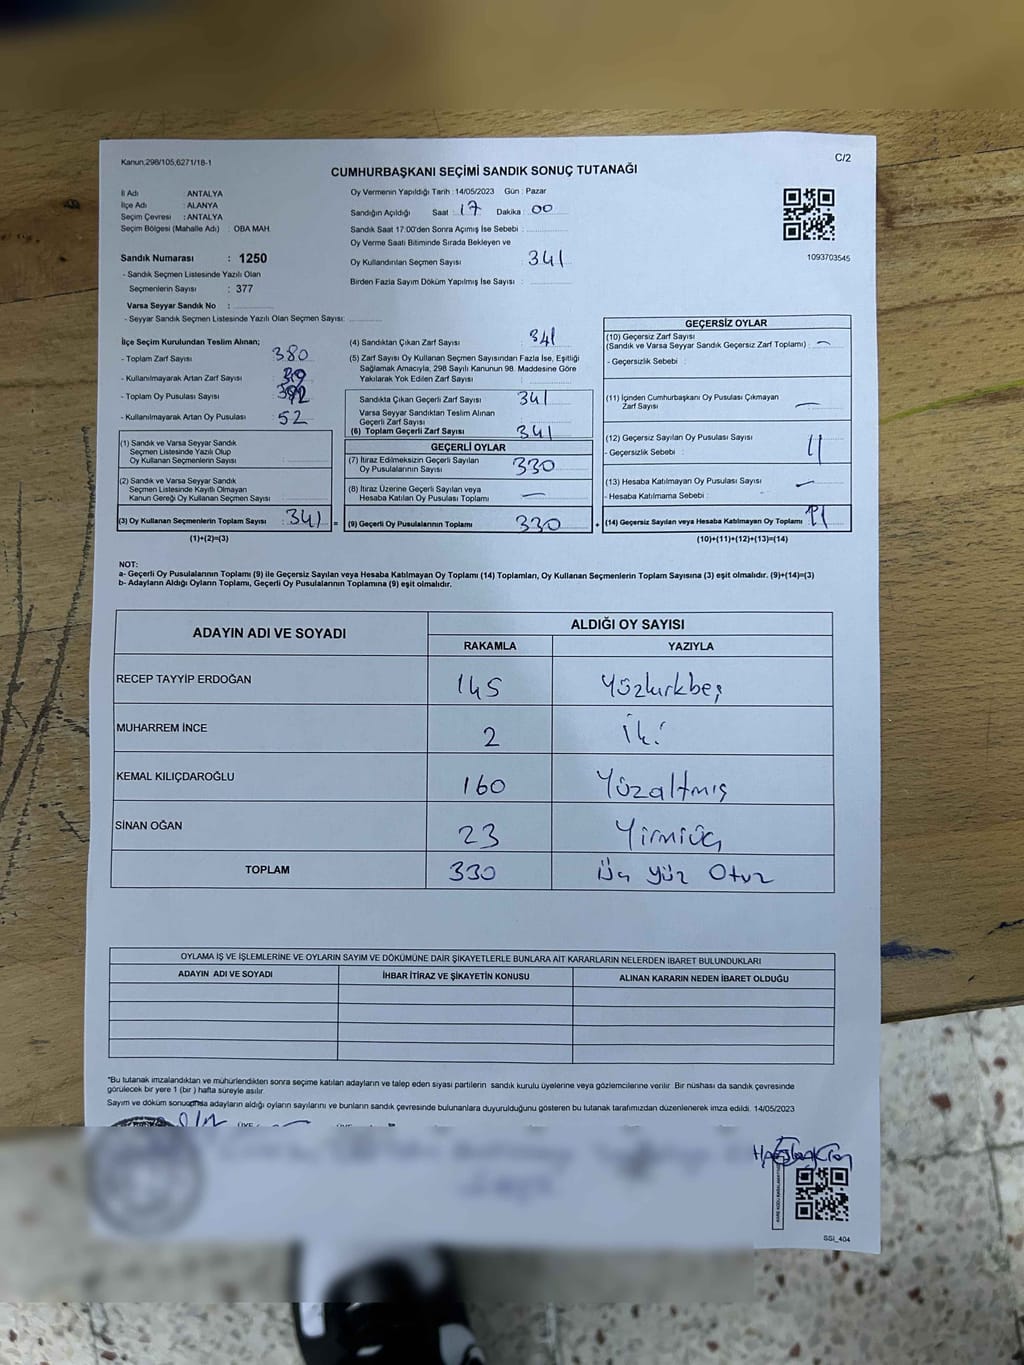 Kanun,298/105,6271/18-1
C/2
CUMHURBAŞKANI SEÇİMİ SANDIK SONUÇ TUTANAĞI
İl Adı : ANTALYA
İlçe Adı : ALANYA
Seçim Çevresi : ANTALYA
Seçim Bölgesi (Mahalle Adı) : OBA MAH.
Sandık Numarası : 1250
- Sandık Seçmen Listesinde Yazılı Olan
Seçmenlerin Sayısı : 377
Varsa Seyyar Sandık No :
- Seyyar Sandık Seçmen Listesinde Yazılı Olan Seçmen Sayısı:
Oy Vermenin Yapıldığı Tarih : 14/05/2023 Gün : Pazar
Sandığın Açıldığı Saat : 17 Dakika : 00
Sandık Saat 17:00'den Sonra Açımış İse Sebebi :
Oy Verme Saati Bitiminde Sırada Bekleyen ve
Oy Kullandırılan Seçmen Sayısı : 341
Birden Fazla Sayım Döküm Yapılmış İse Sayısı :
1093703545
İlçe Seçim Kurulundan Teslim Alınan;
- Toplam Zarf Sayısı : 380
- Kullanılmayarak Artan Zarf Sayısı : 39
- Toplam Oy Pusulası Sayısı : 392
- Kullanılmayarak Artan Oy Pusulası : 52
(1) Sandık ve Varsa Seyyar Sandık
Seçmen Listesinde Yazılı Olup
Oy Kullanan Seçmenlerin Sayısı :
(2) Sandık ve Varsa Seyyar Sandık
Seçmen Listesinde Kayıtlı Olmayan
Kanun Gereği Oy Kullanan Seçmen Sayısı :
(3) Oy Kullanan Seçmenlerin Toplam Sayısı : 341 =
(1)+(2)=(3)
(4) Sandıktan Çıkan Zarf Sayısı : 341
(5) Zarf Sayısı Oy Kullanan Seçmen Sayısından Fazla İse, Eşitliği
Sağlamak Amacıyla, 298 Sayılı Kanunun 98. Maddesine Göre
Yakılarak Yok Edilen Zarf Sayısı :
Sandıkta Çıkan Geçerli Zarf Sayısı : 341
Varsa Seyyar Sandıktan Teslim Alınan
Geçerli Zarf Sayısı :
(6) Toplam Geçerli Zarf Sayısı : 341
GEÇERLİ OYLAR
(7) İtiraz Edilmeksizin Geçerli Sayılan
Oy Pusulalarının Sayısı : 330
(8) İtiraz Üzerine Geçerli Sayılan veya
Hesaba Katılan Oy Pusulası Toplamı : —
(9) Geçerli Oy Pusulalarının Toplamı : 330 +
GEÇERSİZ OYLAR
(10) Geçersiz Zarf Sayısı
(Sandık ve Varsa Seyyar Sandık Geçersiz Zarf Toplamı) : —
- Geçersizlik Sebebi :
(11) İçinden Cumhurbaşkanı Oy Pusulası Çıkmayan
Zarf Sayısı : —
(12) Geçersiz Sayılan Oy Pusulası Sayısı : 11
- Geçersizlik Sebebi :
(13) Hesaba Katılmayan Oy Pusulası Sayısı : —
- Hesaba Katılmama Sebebi :
(14) Geçersiz Sayılan veya Hesaba Katılmayan Oy Toplamı :
(10)+(11)+(12)+(13)=(14)
NOT:
a- Geçerli Oy Pusulalarının Toplamı (9) ile Geçersiz Sayılan veya Hesaba Katılmayan Oy Toplamı (14) Toplamları, Oy Kullanan Seçmenlerin Toplam Sayısına (3) eşit olmalıdır. (9)+(14)=(3)
b- Adayların Aldığı Oyların Toplamı, Geçerli Oy Pusulalarının Toplamına (9) eşit olmalıdır.
ADAYIN ADI VE SOYADI ALDIĞI OY SAYISI
RAKAMLA YAZIYLA
RECEP TAYYİP ERDOĞAN 145 Yüzkırkbeş
MUHARREM İNCE 2 İki
KEMAL KILIÇDAROĞLU 160 Yüzaltmış
SİNAN OĞAN 23 Yirmiüç
TOPLAM 330 Üç yüz Otuz
OYLAMA İŞ VE İŞLEMLERİNE VE OYLARIN SAYIM VE DÖKÜMÜNE DAİR ŞİKAYETLERLE BUNLARA AİT KARARLARIN NELERDEN İBARET BULUNDUKLARI
ADAYIN ADI VE SOYADI İHBAR İTİRAZ VE ŞİKAYETİN KONUSU ALINAN KARARIN NEDEN İBARET OLDUĞU
*Bu tutanak imzalandıktan ve mühürlendikten sonra seçime katılan adayların ve talep eden siyasi partilerin sandık kurulu üyelerine veya gözlemcilerine verilir. Bir nüshası da sandık çevresinde
görülecek bir yere 1 (bir ) hafta süreyle asılır
Sayım ve döküm sonucunda adayların aldığı oyların sayılarını ve bunların sandık çevresinde bulunanlara duyurulduğunu gösteren bu tutanak tarafımızdan düzenlenerek imza edildi. 14/05/2023
SSİ_404